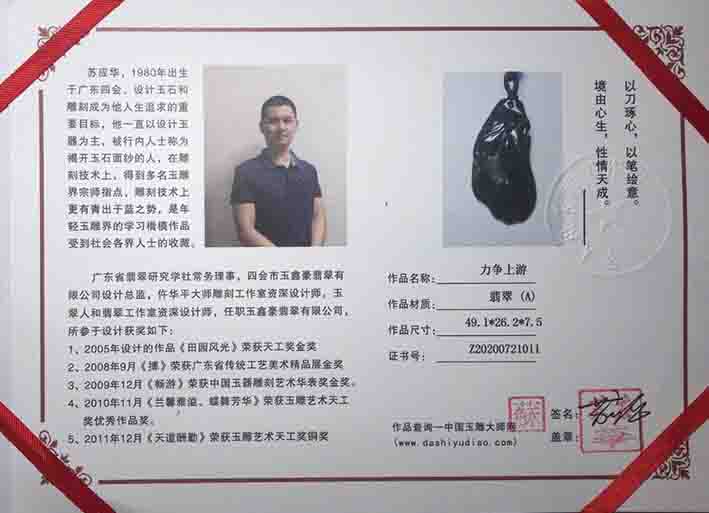 苏成华，1980年出生
于广东四会，设计玉石和
雕刻成为他人生追求的重
要目标，他一直以设计玉
器为主，被行内人士称为
揭开玉石面纱的人，在雕
刻技术上，得到多名玉雕
界宗师指点，雕刻技术上
更有青出于蓝之势，是年
轻玉雕界的学习楷模作品
受到社会各界人士的收藏。
广东省翡翠研究学社常务理事，四会市玉鑫豪翡翠有
限公司设计总监，仵华平大师雕刻工作室资深设计师，玉
翠人和翡翠工作室资深设计师，任职玉鑫豪翡翠有限公司，
所参于设计获奖如下：
1、2005年设计的作品《田园风光》荣获天工奖金奖
2、2008年9月《搏》荣获广东省传统工艺美术精品展金奖
3、2009年12月《畅游》荣获中国玉器雕刻艺术华表奖金奖。
4、2010年11月《兰馨雅溢、蝶舞芳华》荣获玉雕艺术天工
奖优秀作品奖。
5、2011年12月《天道酬勤》荣获玉雕艺术天工奖铜奖
以刀琢心，以笔绘意。
境由心生，性情天成。
作品名称： 力争上游
作品材质： 翡翠（A）
作品尺寸： 49.1*26.2*7.5
证书号： Z20200721011
作品查询—中国玉雕大师
(www.dashiyudiao.com)
签名：
盖章：